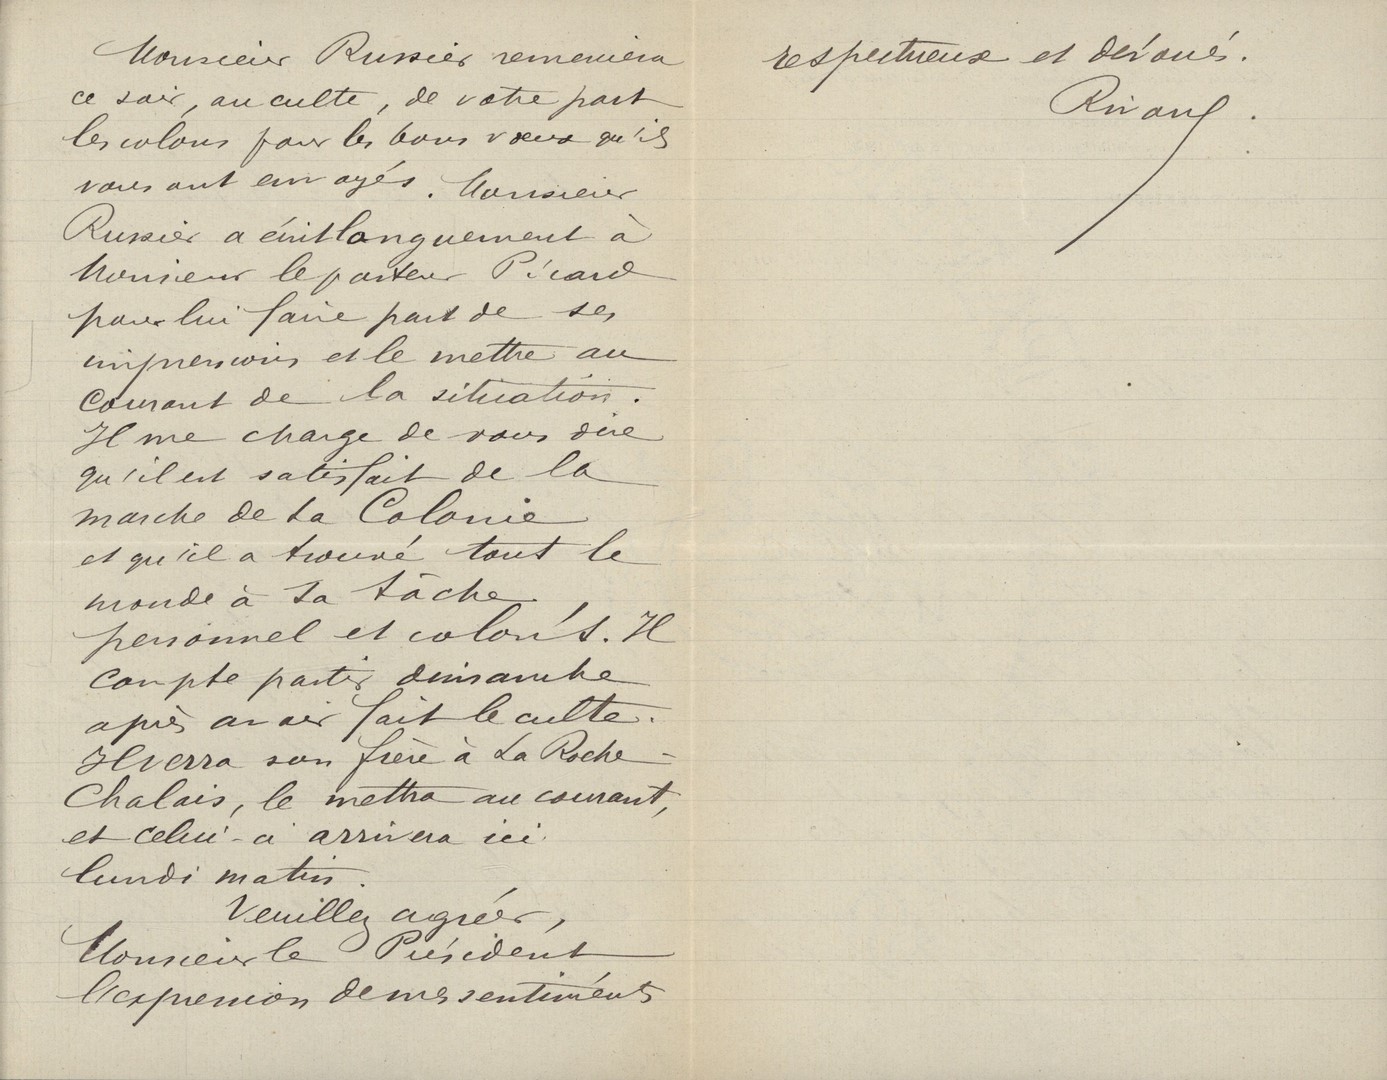 Monsieur Russier remerciera
ce soir, au culte, de votre part
les colons pour les bons voeux qu'ils
vous ont envoyés. Monsieur
Russier a écrit longuement à
Monsieur le pasteur Picard
pour lui faire part de ses
impressions et le mettre au
courant de la situation.
Il me charge de vous dire
qu'il est satisfait de la
marche de la Colonie
et qu'il a trouvé tout le
monde à sa tâche
personnel et colons. Il
compte partir dimanche
après avoir fait le culte.
Il verra son frère à La Roche-
Chalais, le mettra au courant,
et celui-ci arrivera ici
lundi matin.
Veuillez agréer,
Monsieur le Président
l'expression de mes sentiments
respectueux et dévoués.